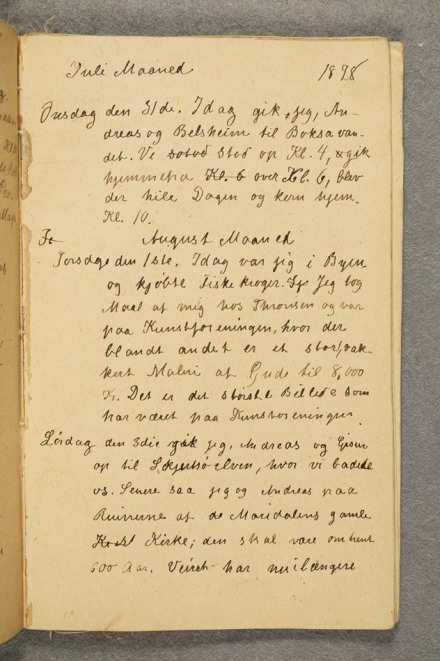 Juli Maaned 1878
Onsdag den 31de. Idag gik, jeg, An-
dreas og Belsheim til Boksavan-
det. Vi stod op Kl. 4, gik
hjemmefra Kl. 6 over Kl. 6, blev
der hele Dagen og kom hjem.
Kl. 10.
August Maaned
Torsdag den 1ste. Idag var jeg i Byen
og kjøbte Fiskekroger. Jeg tog
Maal af mig hos Thronsen og var
paa Kunstforeningen, hvor der
blandt andet er et stort, vak-
kert Maleri af Gude til 8,000
Det er det største Billede som
har været paa Kunstforeningen.
Lördag den 3die gik jeg, Andreas og
op til Skjersöelven, hvor vi badede
os. Senere saa jeg og Andreas paa
Ruinerne af de Maridalens gamle
Kirke; den skal være omtrent
600 Aar. Veiret har nu længere